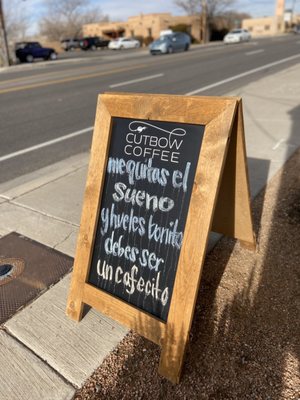 CUTBOW
COFFEE
mequitas el
sueño
y hueles bonito
debes ser
un cafecito